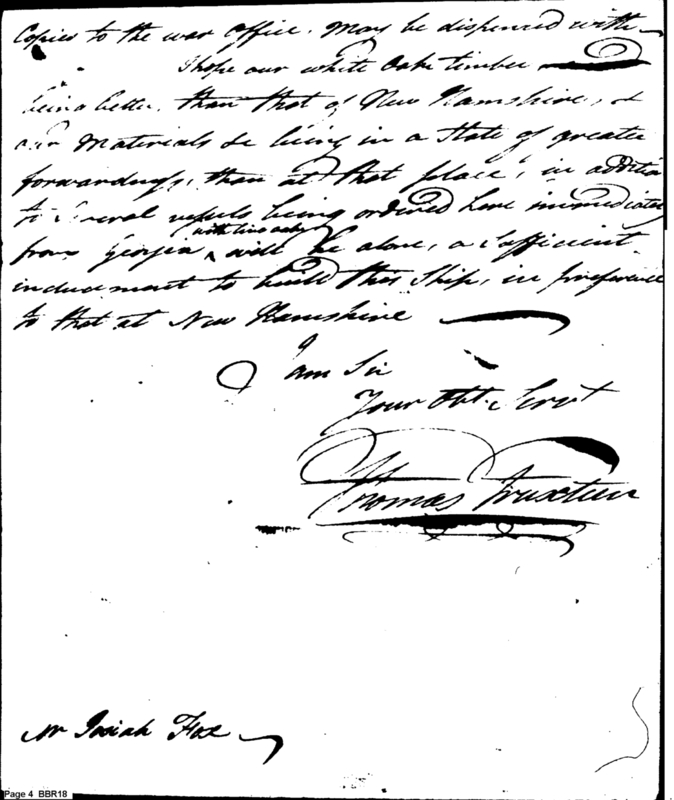 Copies to the war office. May be dispenced with
I hope our white Oak timber
being better, than that of New Hamshire, &
our Materials &c being in a State of greater
forwardness, than at that place, in addition
to Several vessels being ordered here immediately
with live oak
from Georgia ^ will be alone, a Sufficient
inducement to build this Ship, in preference
to that at New Hamshire
I am Sir
Your Obt. Servt
Thomas Truxtun
Mr Josiah Fox
Page 4 BBR18